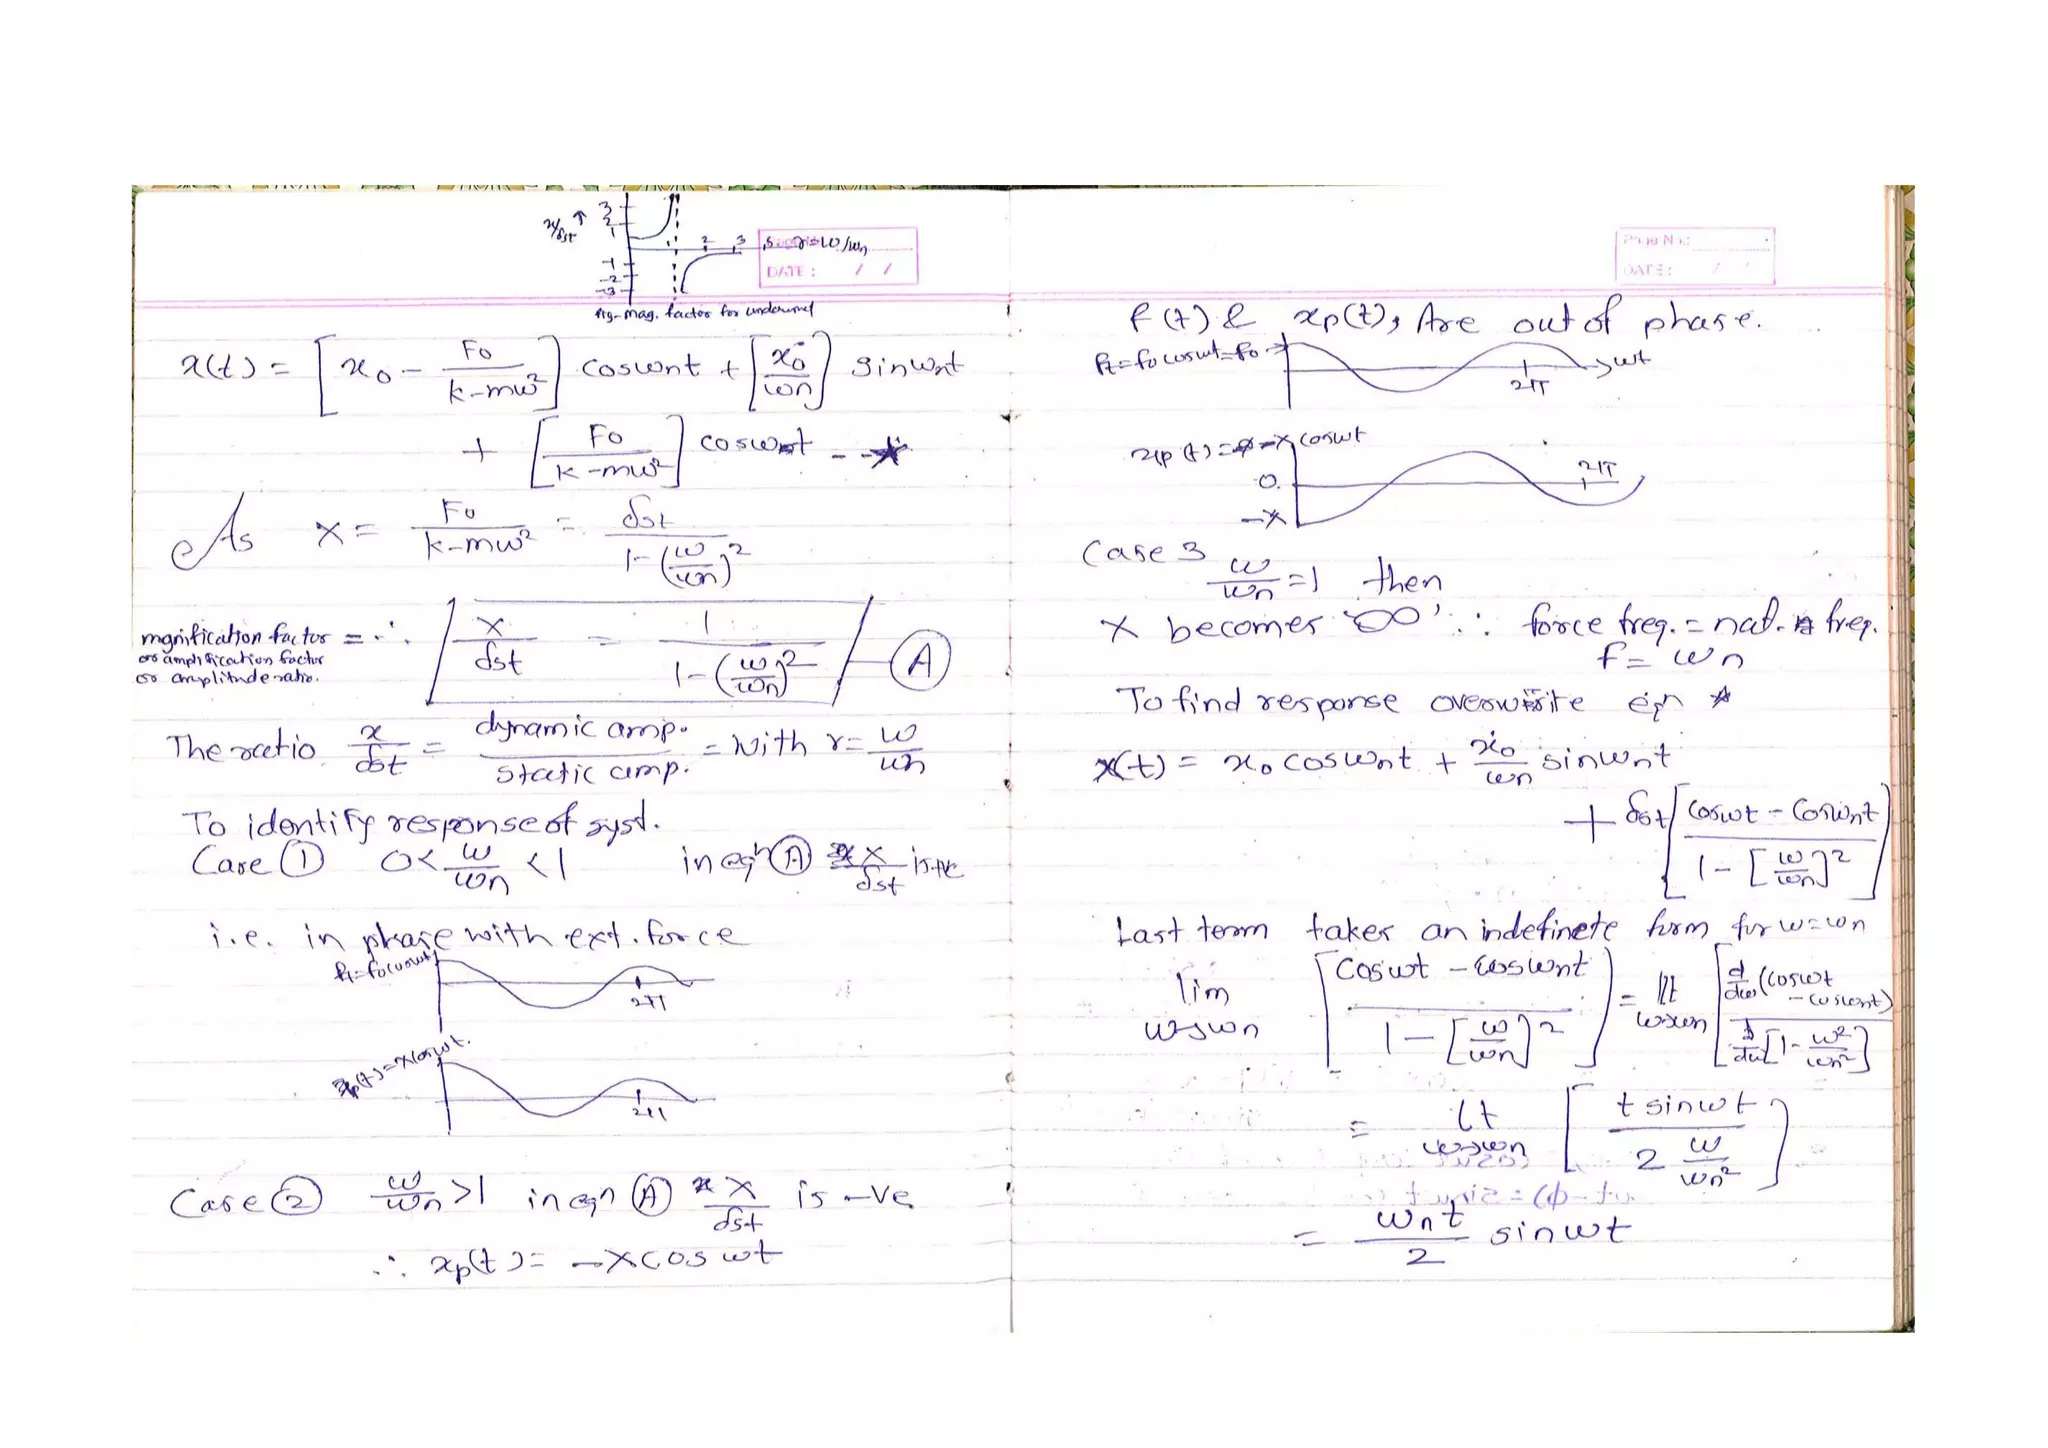 x/δst ↑ 3 2 1
1 2 3 5 r=ω/ωn
-1
-2
-3
DATE : / /
fig- mag. factor for
x(t) = [x0 - F0/(k-mω²)] cosωnt + [ẋ0/ωn] sinωnt
+ [F0/(k-mω²)] cosωt -- *
As X = F0/(k-mω²) = δst/(1-(ω/ωn)²)
magnification factor = ∴ X/δst = 1/(1-(ω/ωn)²) — (A)
or amplification factor
or amplitude ratio.
The ratio x/δst = dynamic amp./static amp. = with r = ω/ωn
To identify response of syst.
Case ① 0 < ω/ωn < 1 in eqn (A) X/δst is +ve
i.e. in phase with ext. force
ft=f0cosωt
2π
xp(t)=xcosωt.
2π
Case ② ω/ωn >1 in eqn (A) X/δst is -ve
∴ xp(t) = -Xcos ωt
Page No:
DATE: / /
F(t) & xp(t), Are out of phase.
ft=f0cosωt=f0 → ωt
2π
xp(t) = -X cosωt
2π
0.
-X
Case 3
ω/ωn = 1 then
X becomes '∞' ∴ force freq. = nat. freq.
f = ωn
To find response overwrite eqn *
x(t) = x0 cosωnt + ẋ0/ωn sinωnt
+ δst [(cosωt - cosωnt)/(1-[ω/ωn]²)]
Last term takes an indefinete form for ω=ωn
lim ω→ωn [(cosωt - cosωnt)/(1-[ω/ωn]²)] = lt ω→ωn [d/dω(cosωt - cosωnt)/d/dω[1-ω²/ωn²]]
= lt ω→ωn [t sinωt/(2 ω/ωn²)]
= ωnt/2 sinωt